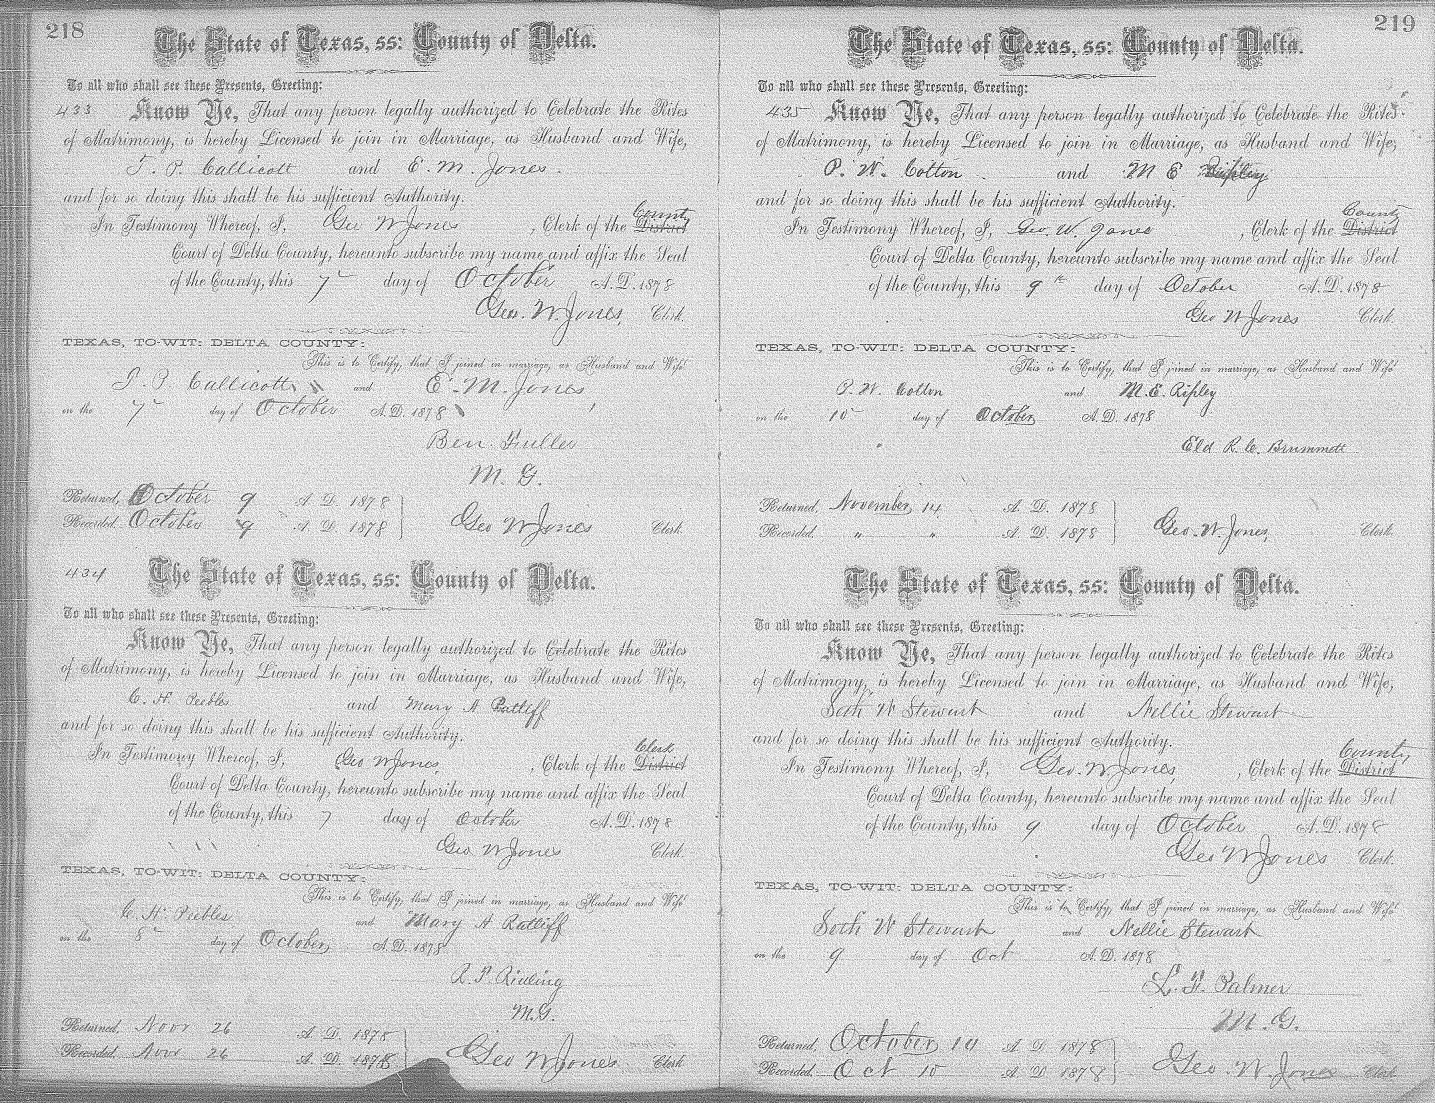 218
The State of Texas, ss: County of Delta.
To all who shall see these Presents, Greeting:
433 Know Ye, That any person legally authorized to Celebrate the Rites
of Matrimony, is hereby Licensed to join in Marriage, as Husband and Wife,
T. P. Callicott and E. M. Jones.
and for so doing this shall be his sufficient Authority.
County
In Testimony Whereof, I, Geo W Jones, Clerk of the District
Court of Delta County, hereunto subscribe my name and affix the Seal
of the County, this 7 day of October A.D. 1878
Geo. W. Jones, Clerk.
TEXAS, TO-WIT: DELTA COUNTY:
This is to Certify, that I joined in marriage, as Husband and Wife
T. P. Callicott and E. M. Jones
on the 7 day of October A.D. 1878
Ben Fuller
M. G.
Returned, October 9 A. D. 1878
Recorded, October 9 A. D. 1878 Geo W Jones Clerk.
434 The State of Texas, ss: County of Delta.
To all who shall see these Presents, Greeting:
Know Ye, That any person legally authorized to Celebrate the Rites
of Matrimony, is hereby Licensed to join in Marriage, as Husband and Wife,
C. H. Peebles and Mary A Ratliff
and for so doing this shall be his sufficient Authority.
Clerk
In Testimony Whereof, I, Geo W Jones, Clerk of the District
Court of Delta County, hereunto subscribe my name and affix the Seal
of the County, this 7 day of October A.D. 1878
Geo W Jones Clerk.
TEXAS, TO-WIT: DELTA COUNTY:
This is to Certify, that I joined in marriage, as Husband and Wife
C. H. Peebles and Mary A Ratliff
on the 8 day of October A.D. 1878
R. P. Riding
M.G.
Returned, Novr 26 A. D. 1878
Recorded, Novr 26 A. D. 1878 Geo W Jones Clerk
219
The State of Texas, ss: County of Delta.
To all who shall see these Presents, Greeting:
435 Know Ye, That any person legally authorized to Celebrate the Rites
of Matrimony, is hereby Licensed to join in Marriage, as Husband and Wife,
P. W. Cotton and M E Ripley
and for so doing this shall be his sufficient Authority.
County
In Testimony Whereof, I, Geo. W. Jones, Clerk of the District
Court of Delta County, hereunto subscribe my name and affix the Seal
of the County, this 9th day of October A.D. 1878
Geo W Jones Clerk.
TEXAS, TO-WIT: DELTA COUNTY:
This is to Certify, that I joined in marriage, as Husband and Wife
P. W. Cotton and M. E. Ripley
on the 10 day of October A.D. 1878
Eld R. C. Brummett
Returned, November 14 A. D. 1878
Recorded, " " A. D. 1878 Geo. W. Jones, Clerk.
The State of Texas, ss: County of Delta.
To all who shall see these Presents, Greeting:
Know Ye, That any person legally authorized to Celebrate the Rites
of Matrimony, is hereby Licensed to join in Marriage, as Husband and Wife,
Seth W Stewart and Nellie Stewart
and for so doing this shall be his sufficient Authority.
County
In Testimony Whereof, I, Geo. W. Jones, Clerk of the District
Court of Delta County, hereunto subscribe my name and affix the Seal
of the County, this 9 day of October A.D. 1878
Geo W Jones Clerk.
TEXAS, TO-WIT: DELTA COUNTY:
This is to Certify, that I joined in marriage, as Husband and Wife
Seth W Stewart and Nellie Stewart
on the 9 day of Oct A.D. 1878
L. F. Palmer
M. G.
Returned, October 10 A. D. 1878
Recorded, Oct 10 A. D. 1878 Geo. W. Jones Clerk